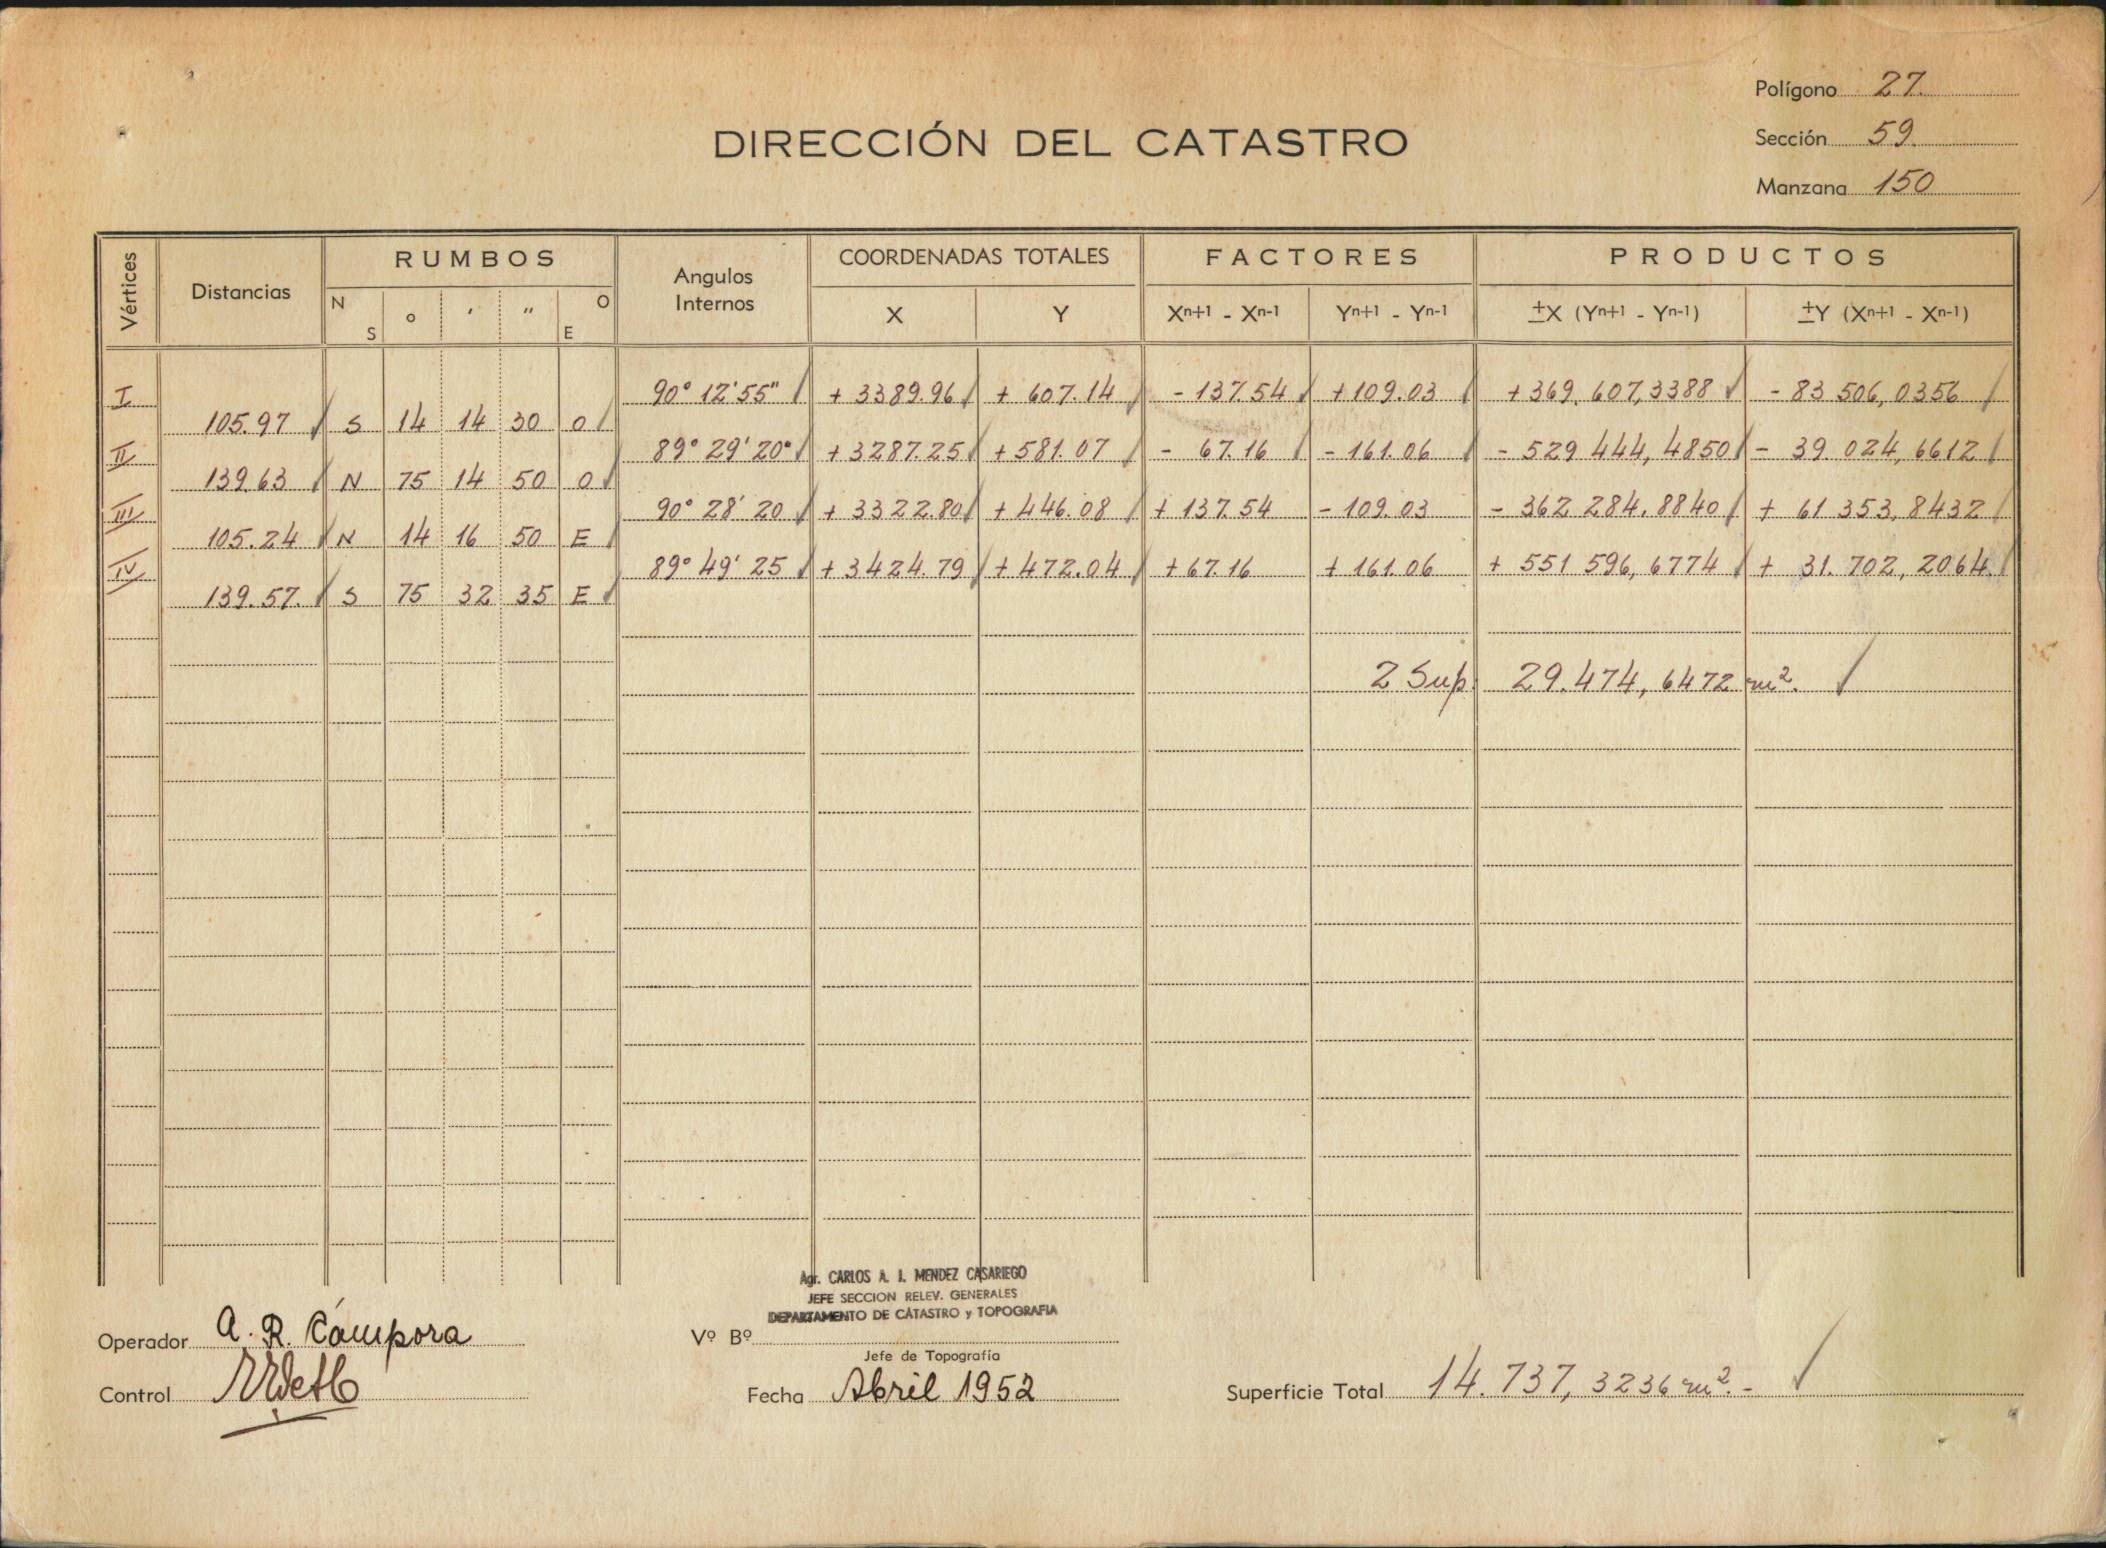 Polígono 27.
Sección 59.
Manzana 150
DIRECCIÓN DEL CATASTRO
Vértices Distancias RUMBOS Angulos Internos COORDENADAS TOTALES FACTORES PRODUCTOS
N S ° ' " O E X Y Xⁿ⁺¹ - Xⁿ⁻¹ Yⁿ⁺¹ - Yⁿ⁻¹ ±X (Yⁿ⁺¹ - Yⁿ⁻¹) ±Y (Xⁿ⁺¹ - Xⁿ⁻¹)
I 90° 12' 55" + 3389.96 + 607.14 - 137.54 + 109.03 + 369.607,3388 - 83 506,0356
105.97 S 14 14 30 O
II 89° 29' 20" + 3287.25 + 581.07 - 67.16 - 161.06 - 529 444,4850 - 39.024,6612
139.63 N 75 14 50 O
III 90° 28' 20 + 3322.80 + 446.08 + 137.54 - 109.03 - 362 284.8840 + 61 353,8432
105.24 N 14 16 50 E
IV 89° 49' 25 + 3424.79 + 472.04 + 67.16 + 161.06 + 551 596,6774 + 31.702,2064.
139.57. S 75 32 35 E
2 Sup. 29.474,6472 m².
Agr. CARLOS A. J. MENDEZ CASARIEGO
JEFE SECCION RELEV. GENERALES
DEPARTAMENTO DE CATASTRO y TOPOGRAFIA
Operador A. R. Cámpora
Vº Bº
Jefe de Topografía
Control
Fecha Abril 1952
Superficie Total 14.737,3236 m².-